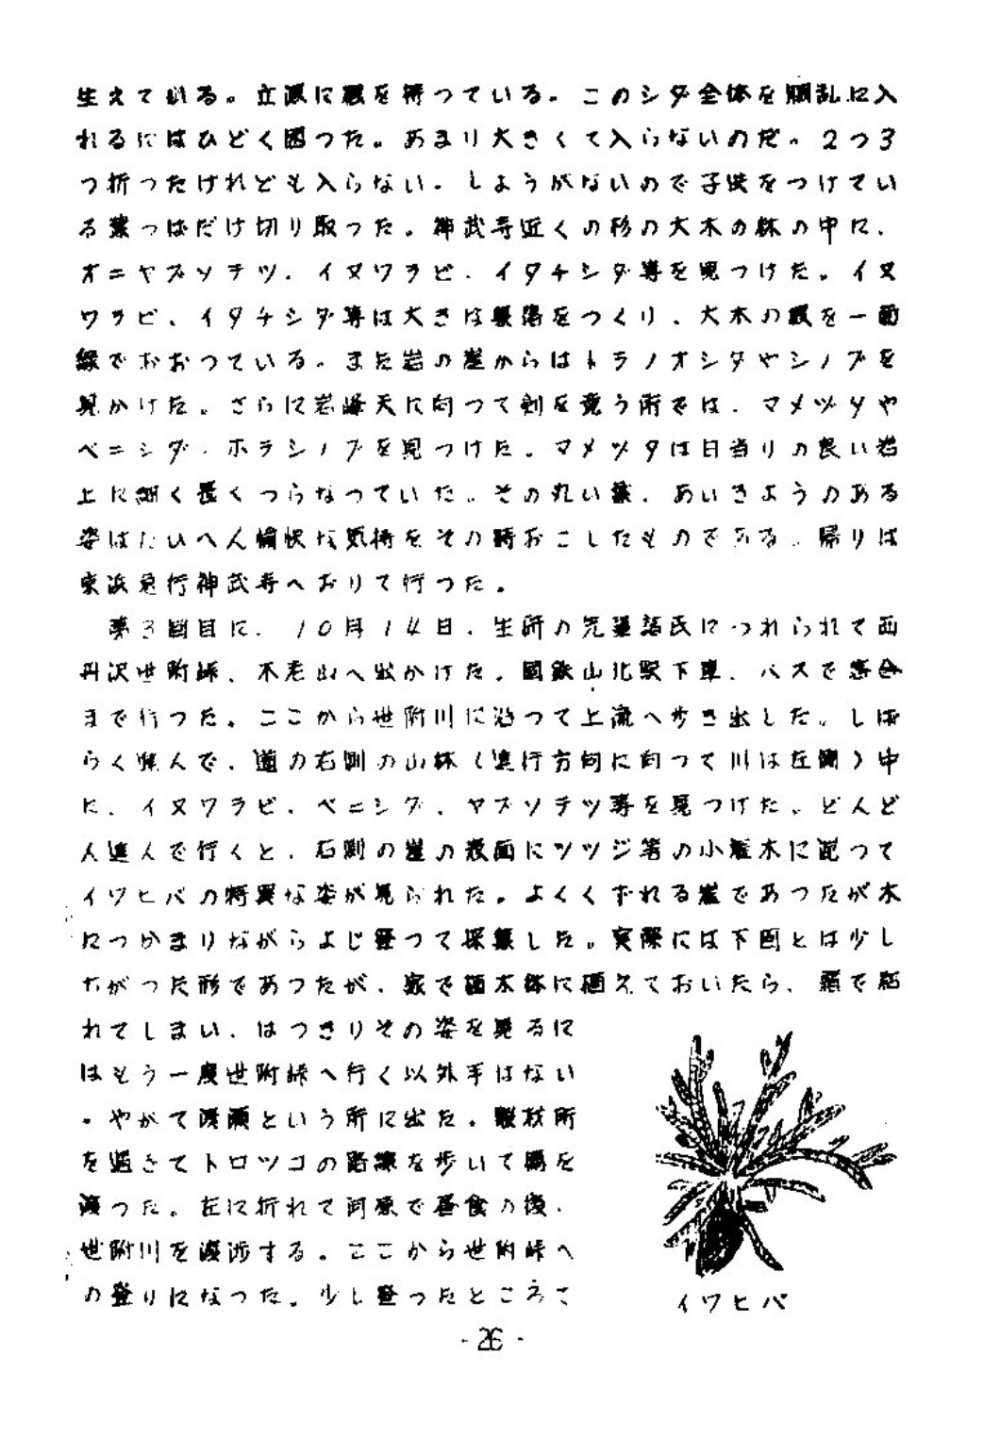 生えている。立派に根を持つている。このシダ全体を胴乱に入
れるにはひどく困つた。あまり大きくて入らないのだ。2つ3
つ折つたけれども入らない。しようがないので子供をつけてい
る葉つぱだけ切り取つた。神武寺近くの杉の大木の林の中に、
オニヤブソテツ、イヌワラビ、イタチシダ等を見つけた。イヌ
ワラビ、イタチシダ等は大きな群落をつくり、大木の根を一面
緑でおおつている。また岩の崖からはトラノオシダやシノブを
見かけた。さらに岩峰天に向つて剣を競う所では、マメヅタや
ベニシダ、ホラシノブを見つけた。マメヅタは日当りの良い岩
上に細く長くつらなつていた。その丸い葉、あいきようのある
姿はたいへん愉快な気持をその時おこしたものである。帰りは
京浜急行神武寺へおりて行つた。
第3回目に、10月14日、生研の先輩諸氏につれられて西
丹沢世附峠、不老山へ出かけた。国鉄山北駅下車、バスで落合
まで行つた。ここから世附川に沿つて上流へ歩き出した。しば
らく進んで、道の右側の山林(進行方向に向つて川は左側)中
に、イヌワラビ、ベニシダ、ヤブソテツ等を見つけた。どんど
ん進んで行くと、右側の崖の表面にツツジ等の小灌木に混つて
イワヒバの特異な姿が見られた。よくくずれる崖であつたが木
につかまりながらよじ登つて採集した。実際には下図とは少し
ちがつた形であつたが、家で植木鉢に植えておいたら、悪で枯
れてしまい、はつきりその姿を見るに
はもう一度世附峠へ行く以外手はない
。やがて浅瀬という所に出た。製材所
を過ぎてトロツコの路線を歩いて橋を
渡つた。左に折れて河原で昼食の後、
世附川を渡渉する。ここから世附峠へ
の登りになつた。少し登つたところで
イワヒバ
- 26 -